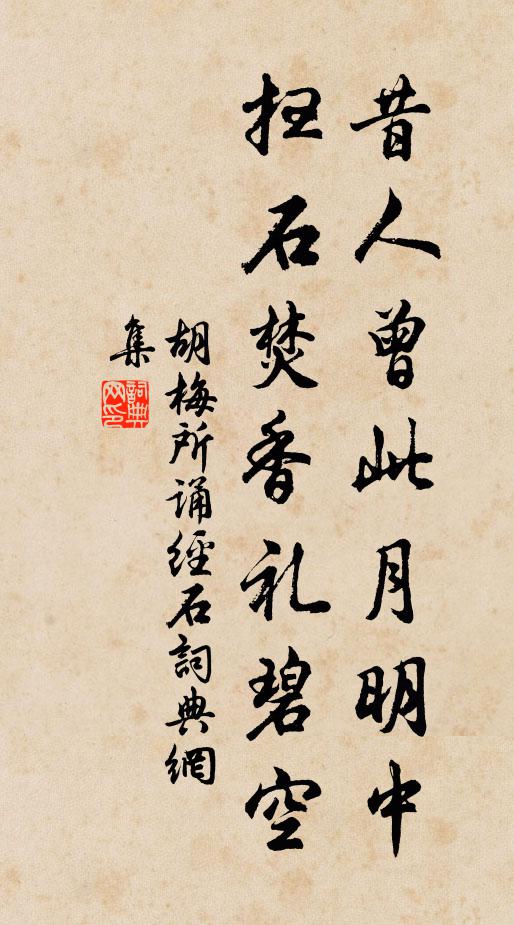 昔人曾此月明中
扫石焚香礼碧空
胡梅所诵經石詞典網
集
詞典
网印